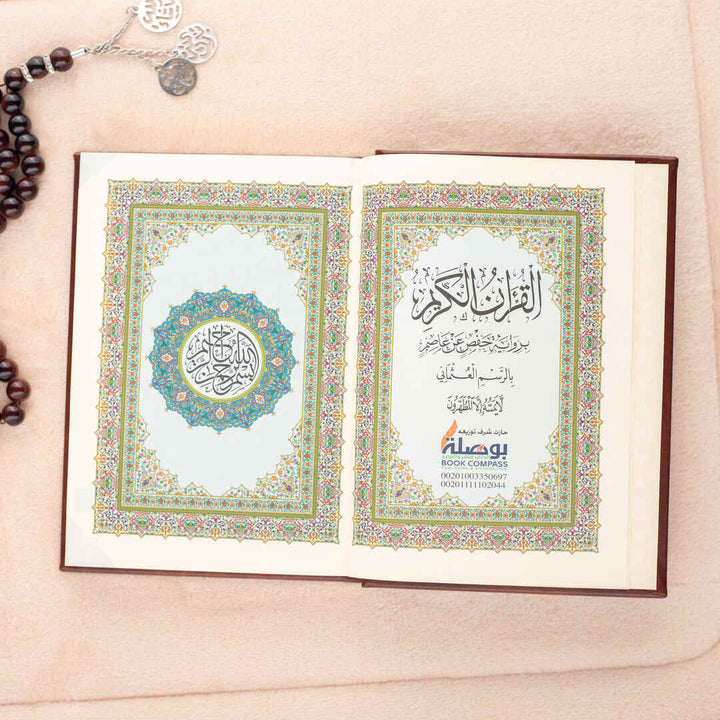 القرآن الكريم
برواية حفص عن عاصم
بالرسم العثماني
لا يمسه إلا المطهرون
حازت شرف توزيعه
بوصلة
BOOK COMPASS
00201003350697
00201111102044
بسم الله الرحمن الرحيم